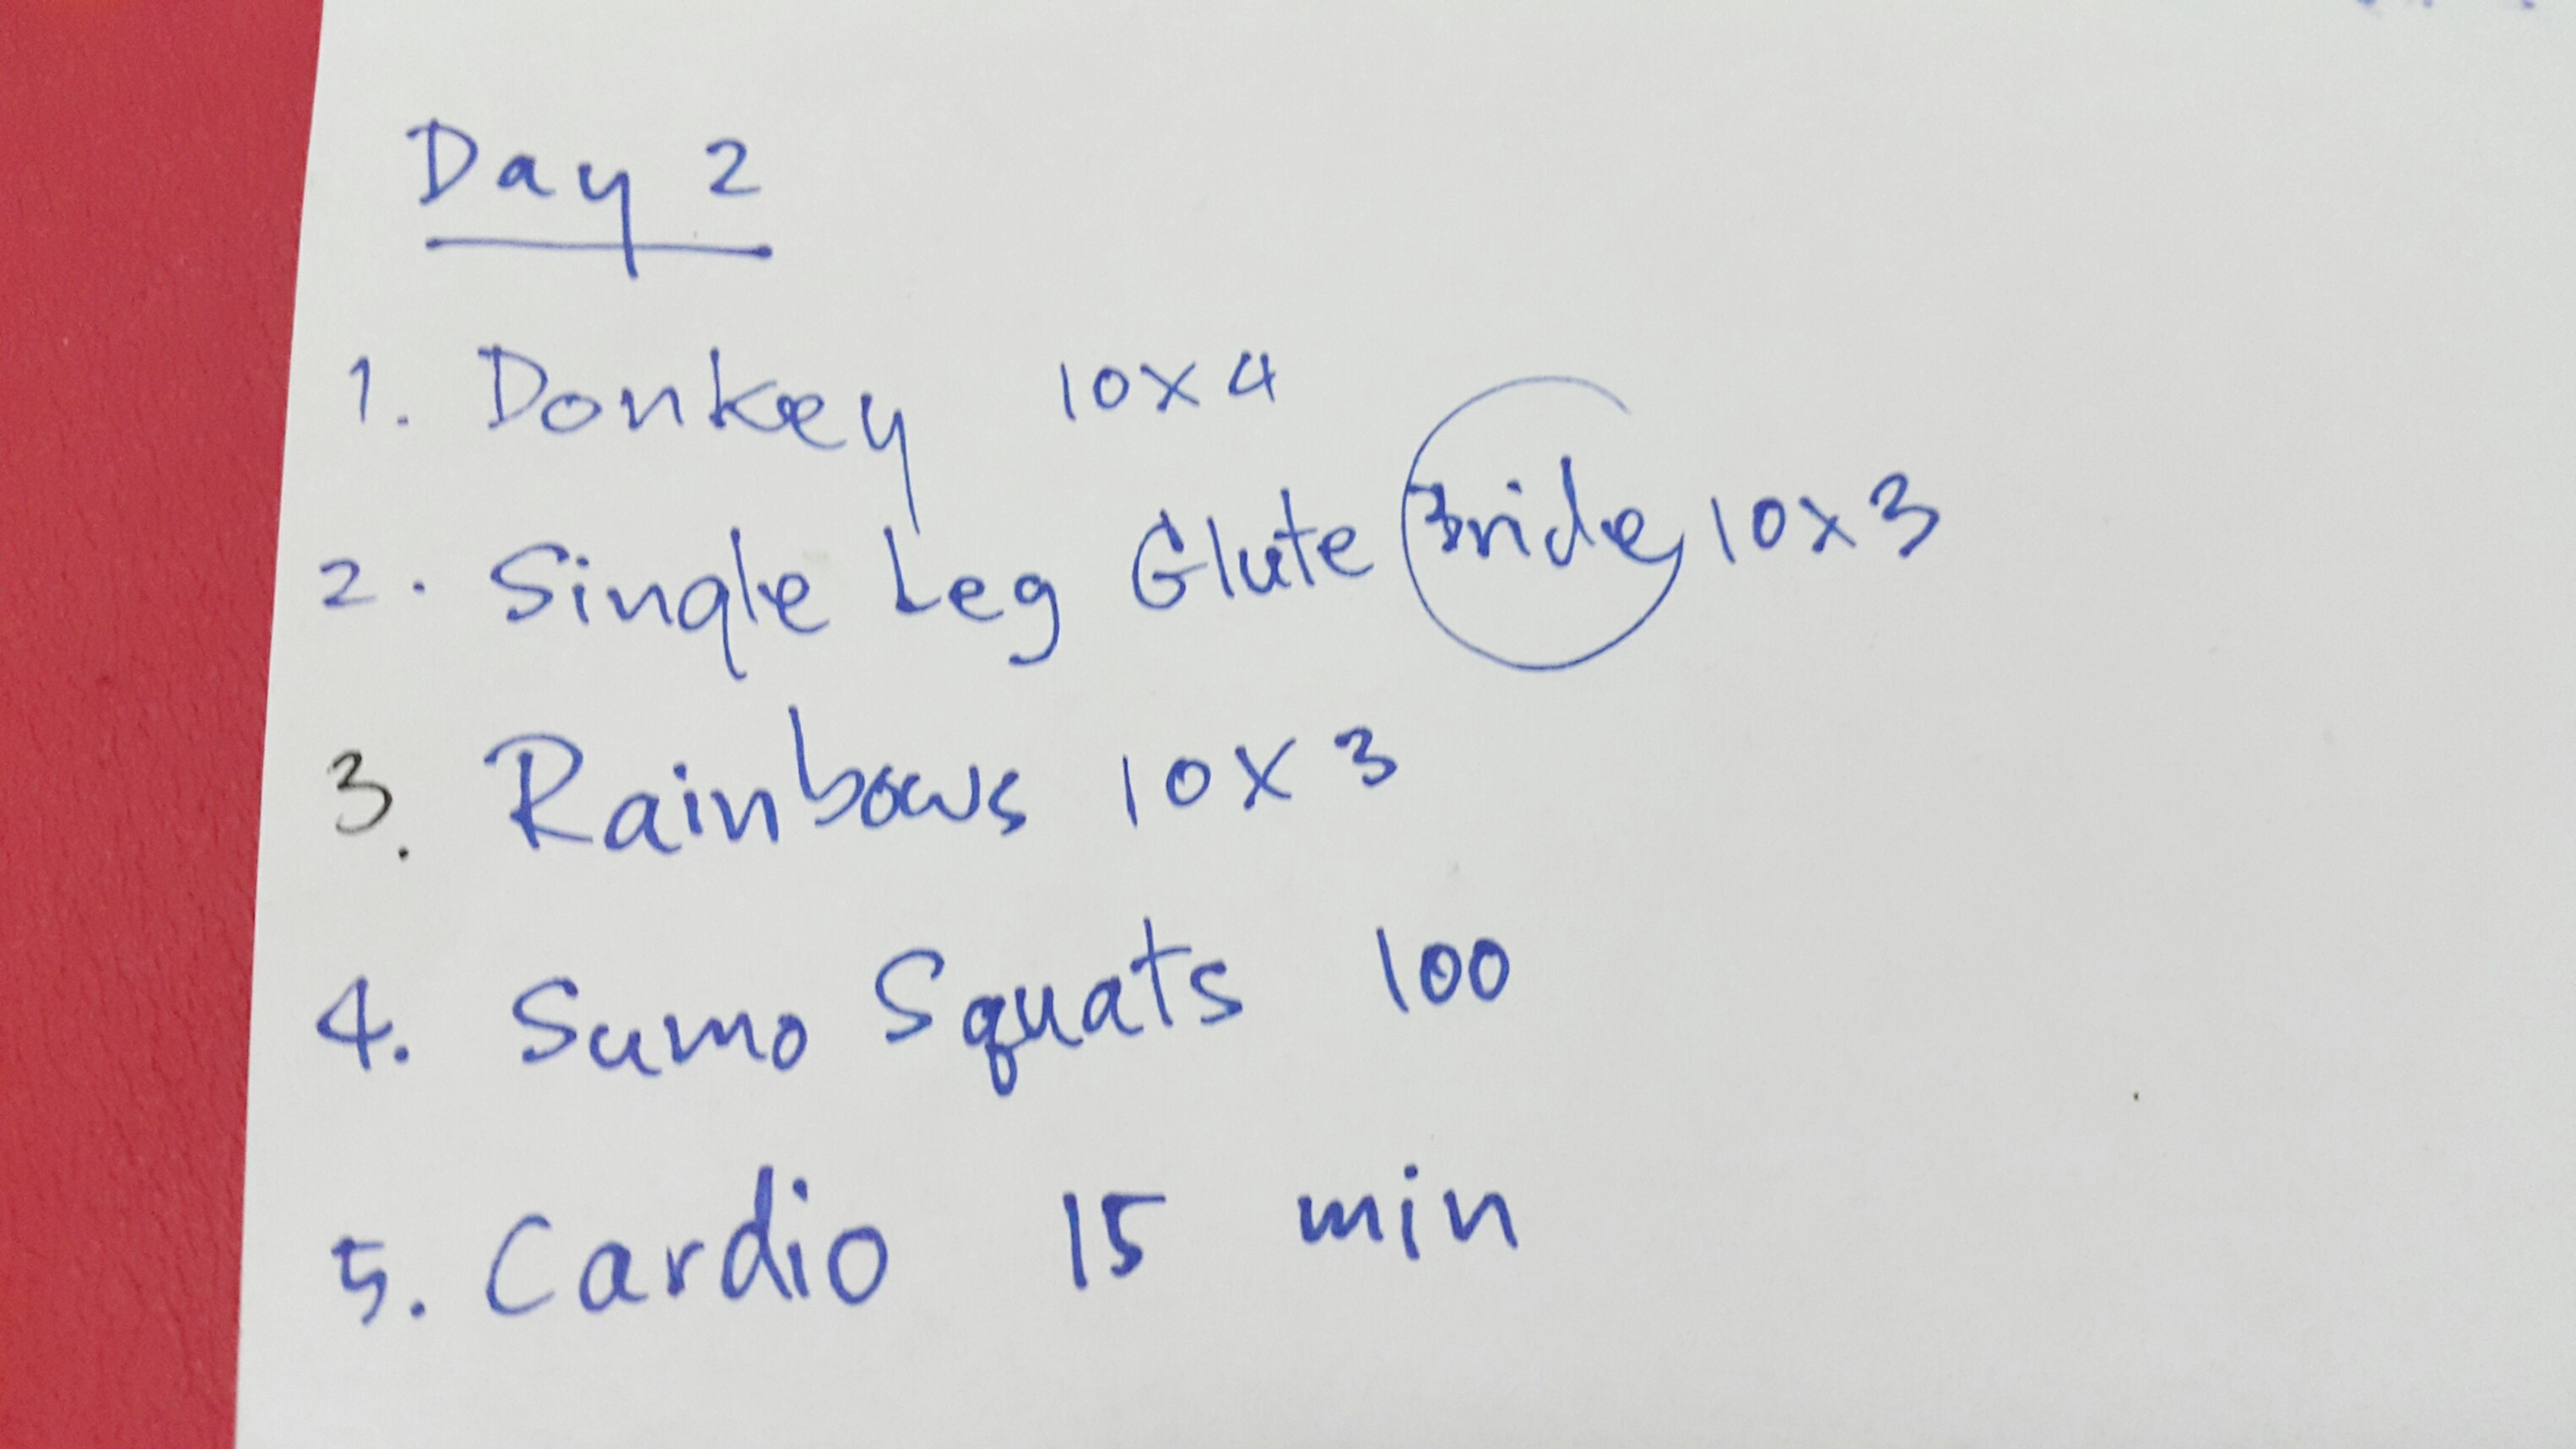 Day 2
1. Donkey 10x4
2. Single Leg Glute Bride 10x3
3. Rainbows 10x3
4. Sumo Squats 100
5. Cardio 15 min